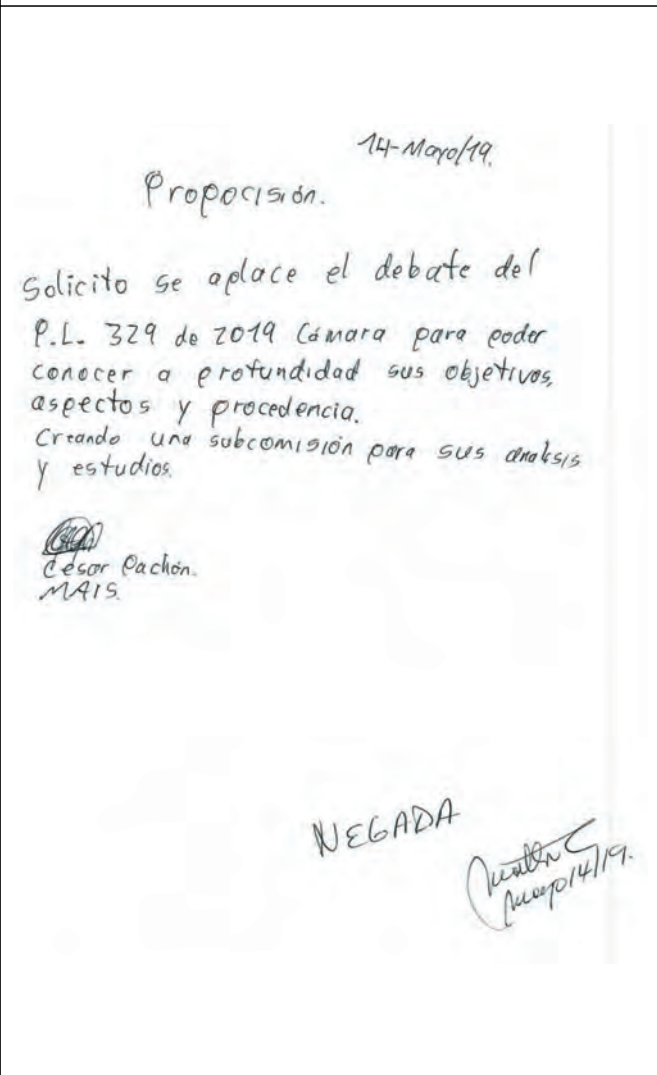 14-Mayo/19.
Propocisión.
Solicito se aplace el debate del
P.L. 329 de 2019 Cámara para poder
conocer a profundidad sus objetivos,
aspectos y procedencia.
Creando una subcomisión para sus analisis
y estudios.
César Pachón.
MAIS.
NEGADA
Mayo 14/19.